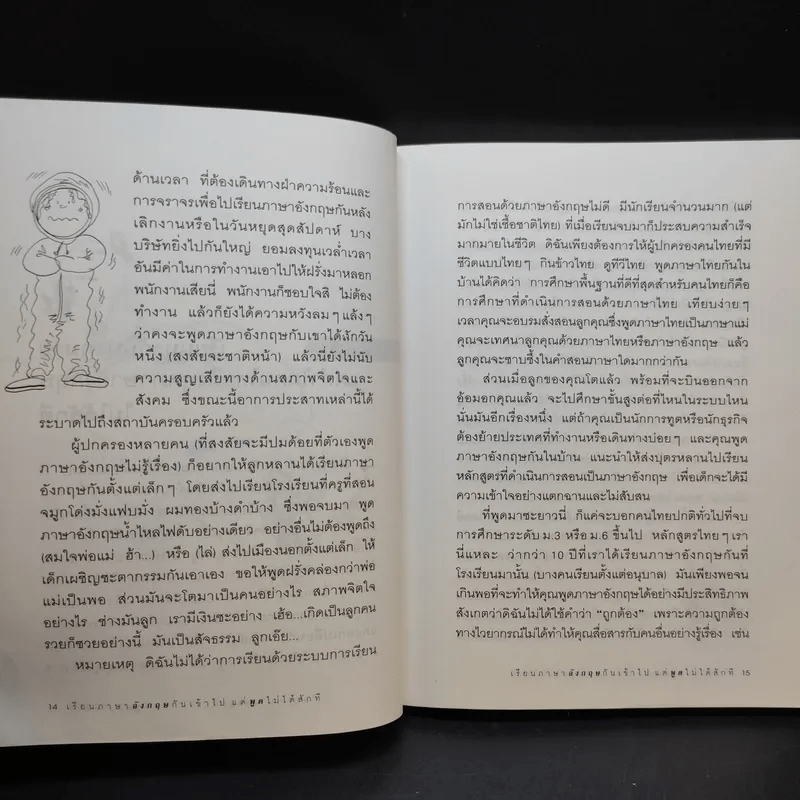 ด้านเวลา ที่ต้องเดินทางฝ่าความร้อนและ
การจราจรเพื่อไปเรียนภาษาอังกฤษกันหลัง
เลิกงานหรือในวันหยุดสุดสัปดาห์ บาง
บริษัทยิ่งไปกันใหญ่ ยอมลงทุนเวล่ำเวลา
อันมีค่าในการทำงานเอาไปให้ฝรั่งมาหลอก
พนักงานเสียนี่ พนักงานก็ชอบใจสิ ไม่ต้อง
ทำงาน แล้วก็ยังได้ความหวังลมๆ แล้งๆ
ว่าคงจะพูดภาษาอังกฤษกับเขาได้ง้กวัน
หนึ่ง (สงสัยจะชาติหน้า) แล้วนี่ยังไม่นับ
ความสูญเสียทางด้านสภาพจิตใจและ
สังคม ซึ่งขณะนี้อาการประสาทเหล่านี้ได้
ระบาดไปถึงสถาบันครอบครัวแล้ว
ผู้ปกครองหลายคน (ที่สงสัยจะมีปมด้อยที่ตัวเองพูด
ภาษาอังกฤษไม่รู้เรื่อง) ก็อยากให้ลูกหลานได้เรียนภาษา
อังกฤษกันตั้งแต่เล็กๆ โดยส่งไปเรียนโรงเรียนที่ครูที่สอน
จมูกโด่งมั่งแฟบมั่ง ผมทองบ้างดำบ้าง ซึ่งพอจบมา พูด
ภาษาอังกฤษน้ำไหลไฟดับอย่างเดียว อย่างอื่นไม่ต้องพูดถึง
(สมใจพ่อแม่ ฮ้า...) หรือ (ไล่) ส่งไปเมืองนอกตั้งแต่เล็ก ให้
เด็กเผชิญชะตากรรมกันเอาเอง ขอให้พูดฝรั่งคล่องกว่าพ่อ
แม่เป็นพอ ส่วนมันจะโตมาเป็นคนอย่างไร สภาพจิตใจ
อย่างไร ช่างมันลูก เรามีเงินซะอย่าง เฮ้อ...เกิดเป็นลูกคน
รวยก็ซวยอย่างนี้ มันเป็นสัจธรรม ลูกเอ๊ย...
หมายเหตุ ดิฉันไม่ได้ว่าการเรียนด้วยระบบการเรียน
14 เรียนภาษาอังกฤษกันเข้าไป แต่พูดไม่ได้สักที
การสอนด้วยภาษาอังกฤษไม่ดี มีนักเรียนจำนวนมาก (แต่
มักไม่ใช่เชื้อชาติไทย) ที่เมื่อเรียนจบมาก็ประสบความสำเร็จ
มากมายในชีวิต ดิฉันเพียงต้องการให้ผู้ปกครองคนไทยที่มี
ชีวิตแบบไทยๆ กินข้าวไทย ดูทีวีไทย พูดภาษาไทยกันใน
บ้านได้คิดว่า การศึกษาพื้นฐานที่ดีที่สุดสำหรับคนไทยก็คือ
การศึกษาที่ดำเนินการสอนด้วยภาษาไทย เทียบง่ายๆ
เวลาคุณจะอบรมสั่งสอนลูกคุณซึ่งพูดภาษาไทยเป็นภาษาแม่
คุณจะเทศนาลูกคุณด้วยภาษาไทยหรือภาษาอังกฤษ แล้ว
ลูกคุณจะซาบซึ้งในคำสอนภาษาใดมากกว่ากัน
ส่วนเมื่อลูกของคุณโตแล้ว พร้อมที่จะบินออกจาก
อ้อมอกคุณแล้ว จะไปศึกษาขั้นสูงต่อที่ไหนในระบบไหน
นั่นมันอีกเรื่องหนึ่ง แต่ถ้าคุณเป็นนักการทูตหรือนักธุรกิจ
ต้องย้ายประเทศที่ทำงานหรือเดินทางบ่อยๆ และคุณพูด
ภาษาอังกฤษกันในบ้าน แนะนำให้ส่งบุตรหลานไปเรียน
หลักสูตรที่ดำเนินการสอนเป็นภาษาอังกฤษ เพื่อเด็กจะได้มี
ความเข้าใจอย่างแตกฉานและไม่สับสน
ที่พูดมาซะยาวนี่ ก็แค่จะบอกคนไทยปกติทั่วไปที่จบ
การศึกษาระดับ ม.3 หรือ ม.6 ขึ้นไป หลักสูตรไทยๆ เรา
นี่แหละ ว่ากว่า 10 ปีที่เราได้เรียนภาษาอังกฤษกันที่
โรงเรียนมานั้น (บางคนเรียนตั้งแต่อนุบาล) มันเพียงพอจน
เกินพอที่จะทำให้คุณพูดภาษาอังกฤษได้อย่างมีประสิทธิภาพ
สังเกตว่าดิฉันไม่ได้ใช้คำว่า “ถูกต้อง” เพราะความถูกต้อง
ทางไวยากรณ์ไม่ได้ทำให้คุณสื่อสารกับคนอื่นอย่างรู้เรื่อง เช่น
เรียนภาษาอังกฤษกันเข้าไป แต่พูดไม่ได้สักที 15